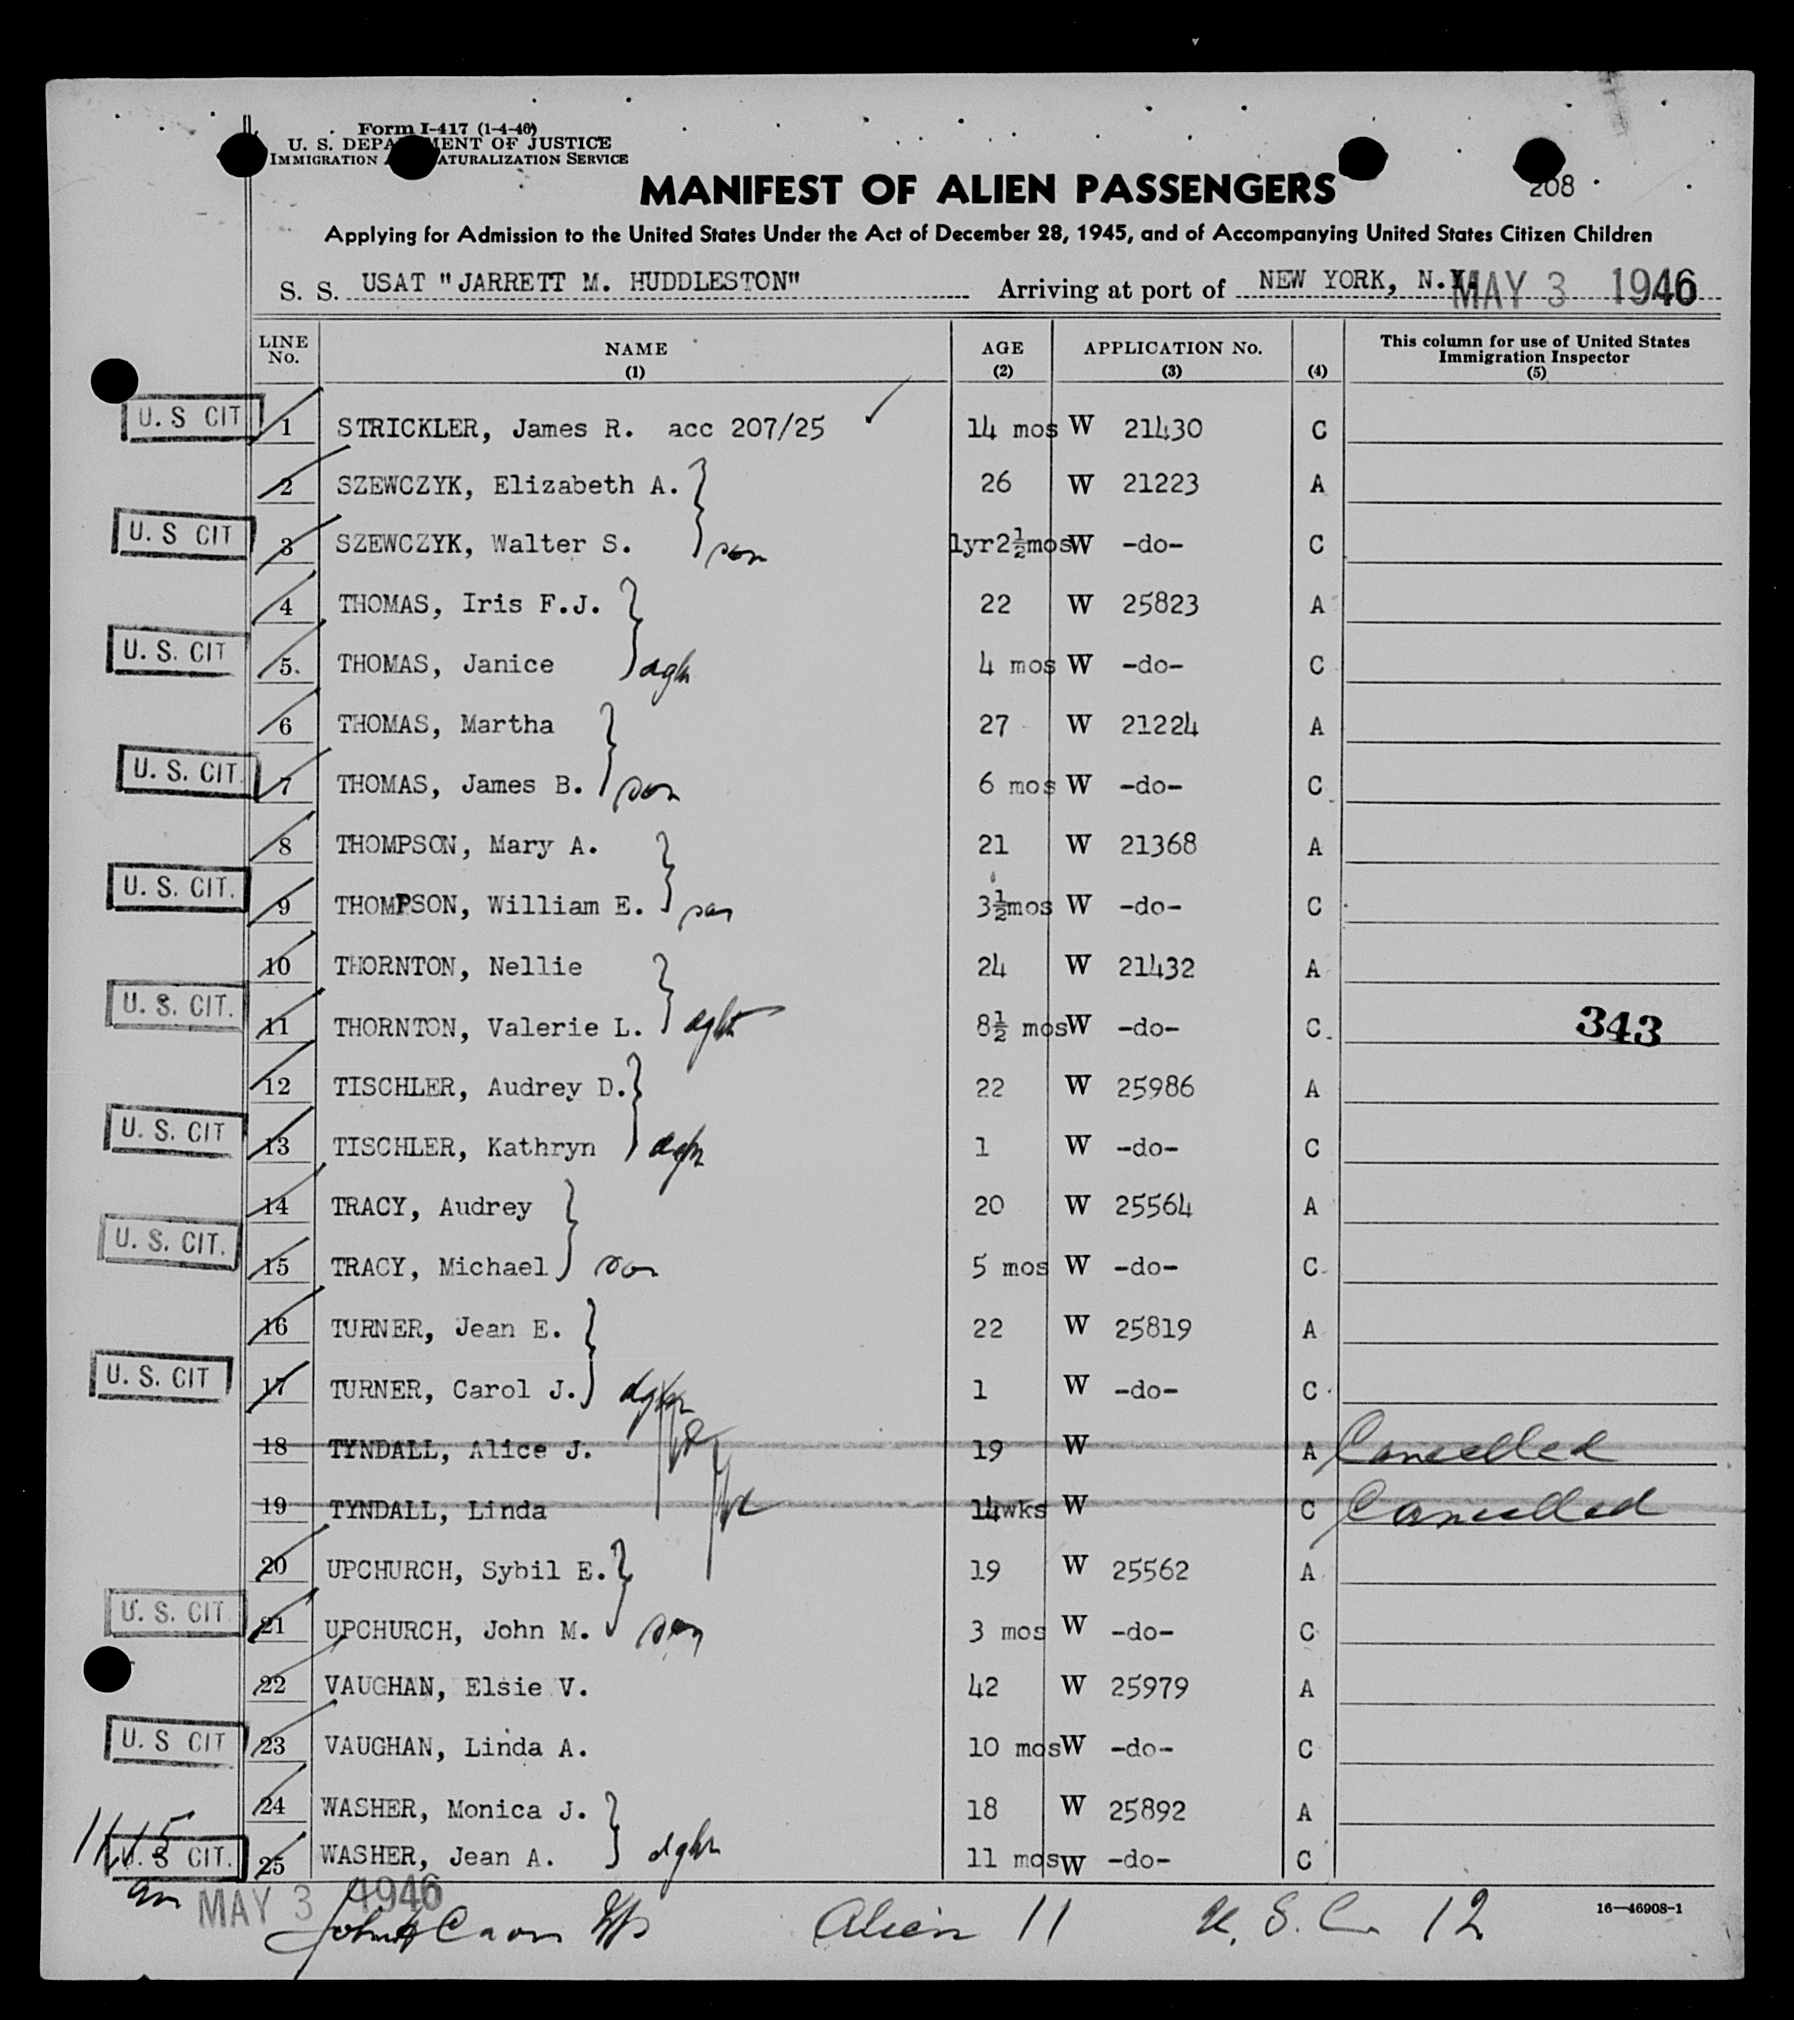 Form I-417 (1-4-46)
U. S. DEPARTMENT OF JUSTICE
IMMIGRATION AND NATURALIZATION SERVICE
MANIFEST OF ALIEN PASSENGERS
208
Applying for Admission to the United States Under the Act of December 28, 1945, and of Accompanying United States Citizen Children
S. S. USAT "JARRETT M. HUDDLESTON" Arriving at port of NEW YORK, N.Y. MAY 3 1946
LINE No. NAME (1) AGE (2) APPLICATION No. (3) (4) This column for use of United States Immigration Inspector (5)
U. S CIT 1 STRICKLER, James R. acc 207/25 ✓ 14 mos W 21430 C
2 SZEWCZYK, Elizabeth A. 26 W 21223 A
U. S CIT 3 SZEWCZYK, Walter S. son 1yr2½mos W -do- C
4 THOMAS, Iris F.J. 22 W 25823 A
U. S. CIT 5. THOMAS, Janice dgh 4 mos W -do- C
6 THOMAS, Martha 27 W 21224 A
U. S. CIT. 7 THOMAS, James B. son 6 mos W -do- C
8 THOMPSON, Mary A. 21 W 21368 A
U. S. CIT. 9 THOMPSON, William E. son 3½mos W -do- C
10 THORNTON, Nellie 24 W 21432 A
U. S. CIT. 11 THORNTON, Valerie L. dght 8½ mos W -do- C 343
12 TISCHLER, Audrey D. 22 W 25986 A
U. S. CIT 13 TISCHLER, Kathryn dgh 1 W -do- C
14 TRACY, Audrey 20 W 25564 A
U. S. CIT. 15 TRACY, Michael son 5 mos W -do- C
16 TURNER, Jean E. 22 W 25819 A
U. S. CIT 17 TURNER, Carol J. dghr 1 W -do- C
18 TYNDALL, Alice J. 19 W A Cancelled
19 TYNDALL, Linda 14wks W C Cancelled
20 UPCHURCH, Sybil E. 19 W 25562 A
U. S. CIT 21 UPCHURCH, John M. son 3 mos W -do- C
22 VAUGHAN, Elsie V. 42 W 25979 A
U. S CIT 23 VAUGHAN, Linda A. 10 mos W -do- C
24 WASHER, Monica J. 18 W 25892 A
U. S CIT. 25 WASHER, Jean A. dghr 11 mos W -do- C
1115 am MAY 3 1946
Alien 11 U. S. C. 12 16-46908-1